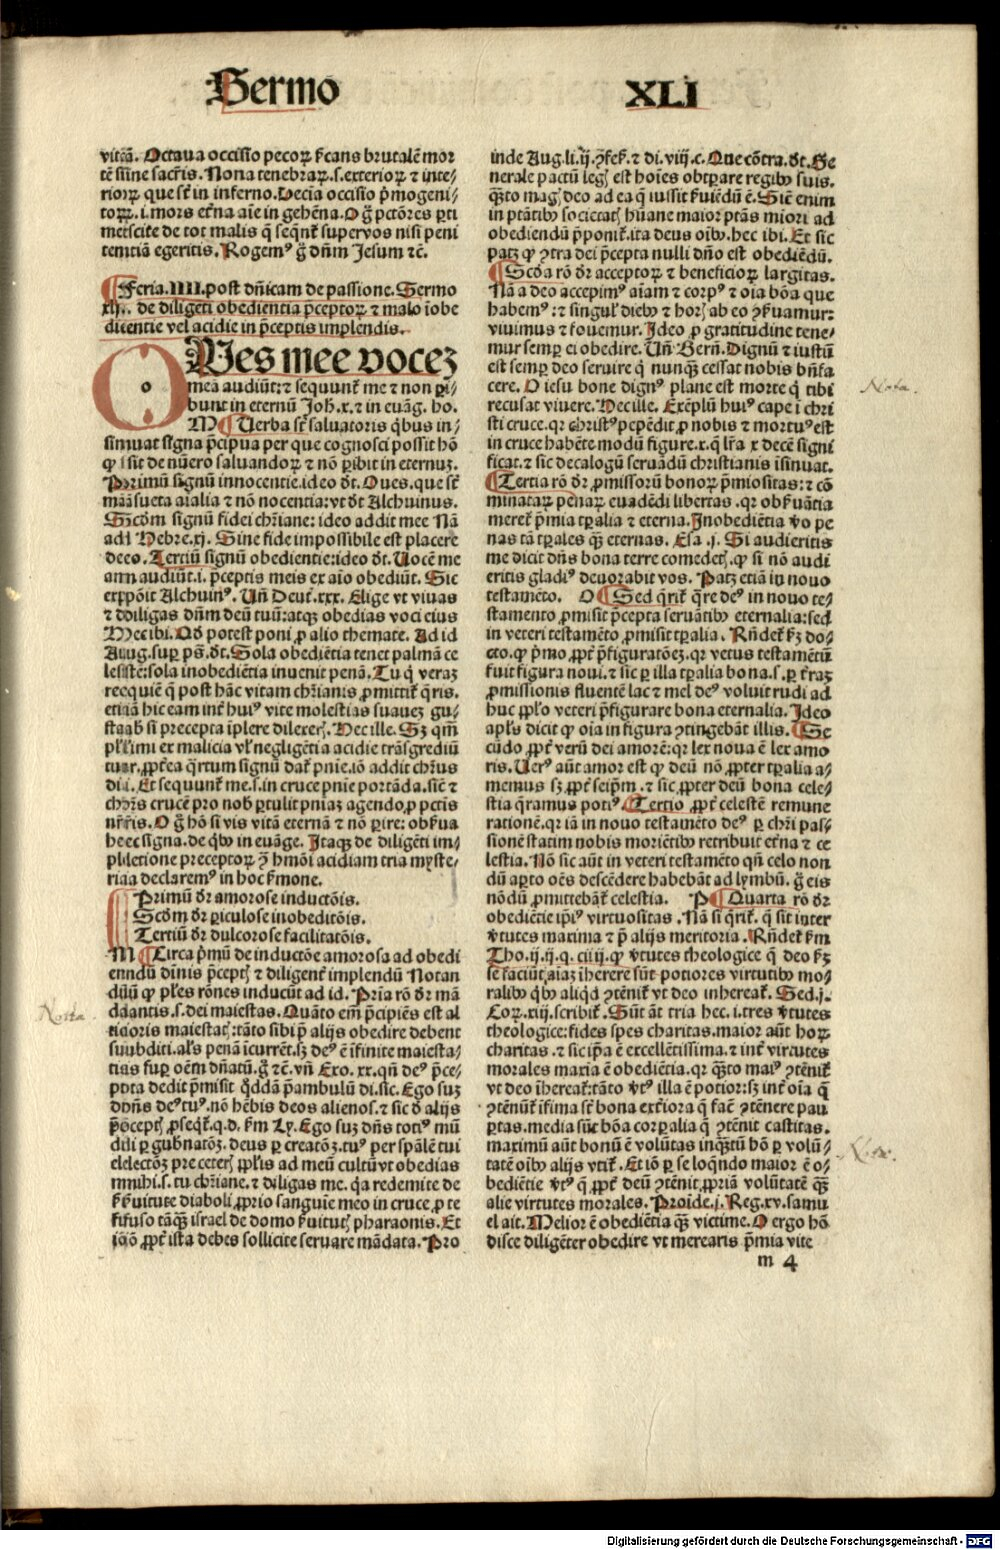 Sermo
XLI
vitēā. Octaua occisio pecoꝝ ſ̄cans brutalē mor
tē siīne sacr̄is. Nona tenebraꝝ.s.exterioꝝ ⁊ inte⸗
rioꝝ que sr̄t in inferno. Decīa occisio p̄mogeni⸗
toꝝ.i.mors et̄na aīe in gehēna. O ḡ pctōres ꝑti
metscite de tot malis q̄ seqn̄t supervos nisi peni
tentiā egeritis. Rogemꝰ ḡ dn̄m Jesum ⁊c̄.
Feria.IIII.post dn̄icam de passione. Sermo
xli. de diligēti obedientia p̄ceptoꝝ ⁊ malo īobe
diientie vel acidie in p̄ceptis implendis.
OVes mee vocez
meā audiūt: ⁊ sequunt̄ me ⁊ non ꝑi⸗
bunt in eternū Joh̄.x. ⁊ in euāg. ho.
M Uerba sr̄t saluatoris q̄bus in⸗
sinuat signa p̄cipua per que cognosci possit hō
ꝙ sit de nūero saluandoꝝ ⁊ nō ꝑibit in eternuz.
Primū signū innocentie. ideo dt̄. Oues. que st̄
māsueta aīalia ⁊ nō nocentia: vt dt̄ Alchuinus.
Scd̄m signū fidei chr̄iane: ideo addit mee Nā
ad Hebre.xj. Sine fide impossibile est placere
deo. Tertiū signū obedientie: ideo dt̄. Uocē me
am audiūt.i. p̄ceptis meis ex aīo obediūt. Sic
exp̄oit Alchuinꝰ. Un̄ Deut̄.xxx. Elige vt viuas
⁊ diligas dn̄m deū tuū: atqꝫ obedias voci eius
Hec ibi. Qd̄ potest poni ꝓ alio themate. Ad id
Aug. suꝑ ps̄. dt̄. Sola obediētia tenet palmā ce
lestē: sola inobediētia inuenit penā. Tu q̄ veraz
requiē q̄ post hāc vitam chr̄ianis ꝓmittit̄ q̄ris.
etiā hic eam int̄ huiꝰ vite molestias suauez gu⸗
stab si precepta īplere dilexeꝭ. Hec ille. Sꝫ qm̄
pl̄imi ex malicia vl̄ negligētia acidie trāsgrediū
tur. ꝓpt̄ea q̄rtum signū dat̄ pnīe. iō addit chr̄us
di.i. Et sequunt̄ me.s.in cruce pnīe portāda. sic̄ ⁊
chr̄s crucē pro nob̄ ꝑtulit pniaz agendo. ꝓ pctis
nr̄is. O ḡ hō si vis vitā eternā ⁊ nō ꝑire: obſ̄ua
hec signa. de q̄bꝰ in euāge. Itaqꝫ de diligēti im⸗
pletione preceptoꝝ ⁊ hmōi acidiam tria myste⸗
ria declaremꝰ in hoc ſ̄mone.
Primū dr̄ amorose inductōis.
Scd̄m dr̄ ꝑiculose inobeditōis.
Tertiū dr̄ dulcorose facilitatōis.
M Circa p̄mū de inductōe amorosa ad obedi
endū diuinis p̄ceptꝭ ⁊ diligent̄ implendū Notan
dū ꝙ pl̄es rōnes inducūt ad id. Pria rō dr̄ mā
dantis.s.dei maiestas. Quāto em̄ p̄cipiēs est al
tioris maiestatꝭ: tāto sibi p̄ alijs obedire debent
subditi. al̄s penā īcurrēt. sꝫ deꝰ ē īfinite maiesta⸗
tis sup oēm dn̄atū. ḡ ⁊c̄. vn̄ Exo.xx. qn̄ deꝰ p̄ce⸗
pta dedit p̄misit q̄ddā p̄ambulū di. sic. Ego suꝫ
dn̄s deꝰ tuꝰ. nō hēbis deos alienos. ⁊ sic d̄ alijs
p̄ceptꝭ ꝓseqt̄. q.d. ſm̄ Ly. Ego suꝫ dn̄s totiꝰ mū
di ꝑ gub̄natōꝫ. deus ꝑ creatōꝫ. tuꝰ per spālē tui
electōꝫ pre ceterꝭ pp̄lis ad meū cultū vt obedias
mihi.s. tu chr̄iane. ⁊ diligas me. q̄a redemite de
ſ̄uitute diaboli ꝓprio sanguīe meo in cruce ꝓ te
fuso tāqꝫ israel de domo ſ̄uitutꝭ pharaonis. Et
iō ꝓpt̄ ista debes sollicite seruare mādata. Pro
inde Aug.li.ij.ꝯfeſ. ⁊ di.viij.c. Que cōtra. dt̄. Ge
nerale pactū legꝭ est hoīes obtꝑare regibꝰ suis.
q̄ꝫto magꝭ deo ad ea q̄ iussit ſ̄uiēdū ē. Sic̄ enim
in ptātibꝰ societatꝭ hūane maior ptās miori ad
obediendū p̄ponit̄. ita deus oībꝰ. hec ibi. Et sic
patꝫ ꝙ ꝯtra dei p̄cepta nulli dn̄o est obediēdū.
Scd̄a rō dr̄ acceptoꝝ ⁊ beneficioꝝ largitas.
Nā a deo accepimꝰ aīam ⁊ corpꝰ ⁊ oīa bōa que
habemꝰ: ⁊ singul̄ diebꝰ ⁊ horꝭ ab eo ꝯſ̄uamur:
viuimus ⁊ fouemur. Ideo ꝓ gratitudine tene⸗
mur semꝑ ei obedire. Un̄ Bern̄. Dignū ⁊ iustū
est semꝑ deo seruire q̄ nunqꝫ cessat nobis bn̄fa
cere. O iesu bone dignꝰ plane est morte q̄ tibi
recusat viuere. Hec ille. Exēplū huiꝰ cape i chri
sti cruce. qꝛ christꝰ pepēdit ꝓ nobis ⁊ mortuꝰ est
in cruce habēte modū figure.x.q̄ lr̄a x decē signi
ficat. ⁊ sic decalogū seruādū christianis īsinuat.
Tertia rō dr̄ ꝓmissorū bonoꝝ p̄miositas: ⁊ cō
minataꝝ penaꝝ euadēdi libertas. qꝛ obſ̄uātia
meret̄ p̄mia tꝑalia ⁊ eterna. Inobediētia v̄o pe
nas tā tꝑales qꝫ eternas. Esa.j. Si audieritis
me dicit dn̄s bona terre comedetꝭ. ꝙ si nō audi
eritis gladiꝰ deuorabit vos. Patꝫ etiā in nouo
testamēto. O Sed q̄rit̄ q̄re deꝰ in nouo te⸗
stamento ꝓmisit p̄cepta seruātibꝰ eternalia: sed
in veteri testamēto ꝓmisit tꝑalia. Rn̄det̄ ſꝫ do⸗
cto. ꝙ p̄mo ꝓpt̄ p̄figuratōeꝫ. qꝛ vetus testamētū
fuit figura noui. ⁊ sic ꝑ illa tꝑalia bona.s. ꝑ t̄raꝫ
ꝓmissionis fluentē lac ⁊ mel deꝰ voluit rudi ad
huc pp̄lo veteri p̄figurare bona eternalia. Ideo
apl̄s dicit ꝙ oīa in figura ꝯtingebāt illis. Se
cūdo ꝓpt̄ verū dei amorē: qꝛ lex noua ē lex amo
ris. Uerꝰ aūt amor est ꝙ deū nō ꝓpter tꝑalia a⸗
memus sꝫ ꝓpt̄ seip̄m. ⁊ sic ꝓpter deū bona cele⸗
stia q̄ramus potiꝰ. Tertio ꝓpt̄ celestē remune
rationē. qꝛ iā in nouo testamēto deꝰ ꝑ chr̄i pas⸗
sionē statim nobis moriētibꝰ retribuit et̄na ⁊ ce
lestia. Nō sic aūt in veteri testamēto qn̄ celo non
dū aꝑto oēs descēdere habebāt ad lymbū. ḡ eis
nōdū ꝓmittebāt̄ celestia. P Quarta rō dr̄
obediētie ip̄iꝰ virtuositas. Nā si q̄rit̄. q̄ sit inter
v̄tutes maxima ⁊ p̄ alijs meritoria. Rn̄det̄ ſm̄
Tho.ij.ij.q.ciiij.ꝙ v̄tutes theologice q̄ deo ſꝫ
se faciūt aīaꝫ īherere sūt potiores virtutibꝰ mo⸗
ralibꝰ q̄bꝰ aliqd̄ ꝯtēnit̄ vt deo inhereat̄. Sed.j.
Cor.xiij.scribit̄. Sūt āt tria hec.i.tres v̄tutes
theologice: fides spes charitas. maior aūt horꝝ
charitas. ⁊ sic ip̄a ē excellētissima. ⁊ int̄ virtutes
morales maxīa ē obediētia. qꝛ q̄ꝫto maiꝰ ꝯtēnit̄
vt deo īhereat̄: tāto v̄tꝰ illa ē potior: sꝫ int̄ oīa q̄
ꝯtēnūt̄ īfima sr̄t bona ext̄iora q̄ fac̄ ꝯtēnere pau
ꝑtas. media sūt bōa corꝑalia q̄ ꝯtēnit castitas.
maximū aūt bonū ē volūtas inq̄ꝫtū hō ꝑ volū⸗
tatē oībꝰ alijs vtit̄. Et iō ꝑ se loqn̄do maior ē o⸗
bediētie v̄tꝰ q̄ ꝓpt̄ deū ꝯtēnit ꝓpriā volūtatē qꝫ
alie virtutes morales. Proīde.j.Reg.xv.samu
el ait. Melior ē obediētia qꝫ victime. O ergo hō
disce diligēter obedire vt merearis p̄mia vite
m 4
Nota.
Notta
Nota.
Digitalisierung gefördert durch die Deutsche Forschungsgemeinschaft - DFG